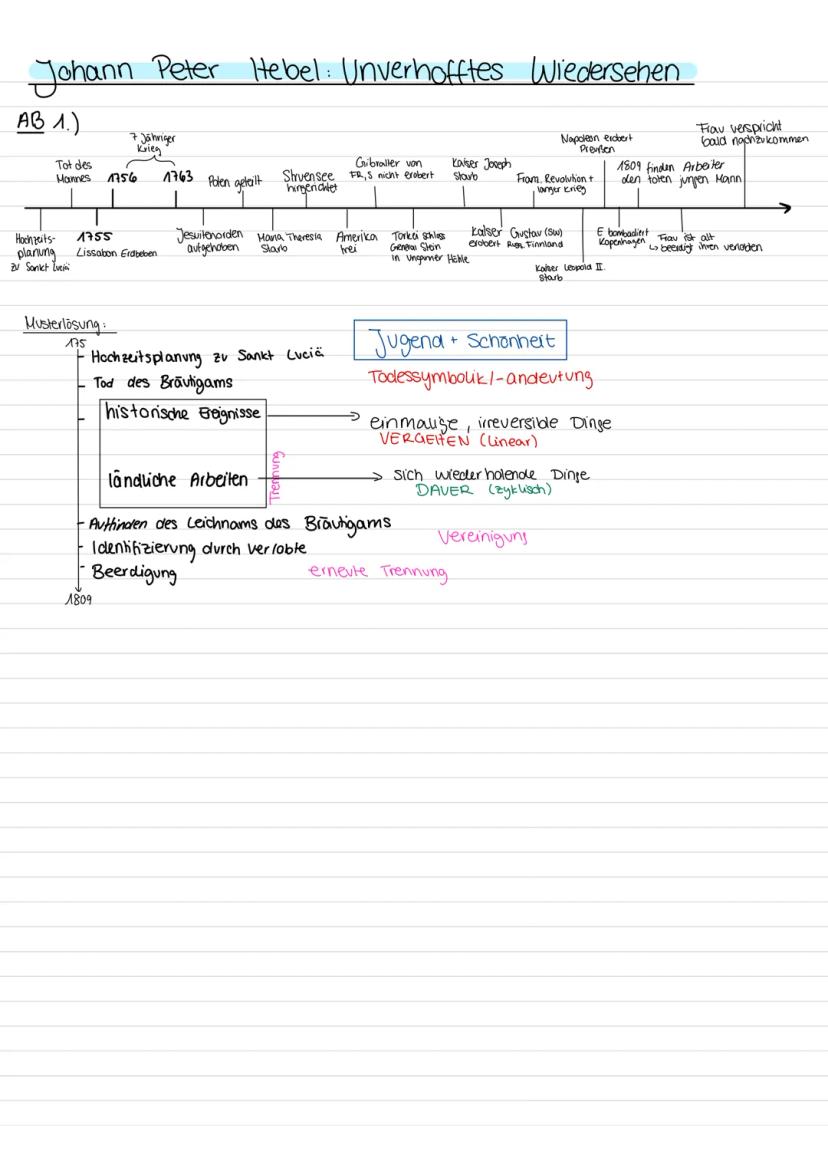 Johann Peter Hebel: Unverhofftes Wiedersehen
AB 1.)
7 Jähriger
Krieg
Tot des
Mannes
1756
1763
Polen geteilt
Struensee
hingerichtet
Gibraller von
FR, S nicht erobert
Kaiser Joseph
Starb
Franz. Revolution +
langer Krieg
Napoleon erobert
Preußen
1809 finden Arbeiter
den toten jungen Mann
Frau verspricht
bald nachzukommen
Hochzeits-
planung
zu Sankt Luciä
1755
Lissabon Erdbeben
Jesuitenorden
aufgehoben
Maria Theresia
Starb
Amerika
frei
Türkei schloss
General Stein
in Ungarner Höhle
Kaiser Gustav (SW)
erobert Russ. Finnland
Kaiser Leopold II.
Starb
E bombadiert
Kopenhagen
Frau ist alt
↳ beerdigt ihren verlobten
Musterlösung:
175
Hochzeitsplanung zu Sankt Luciä
Jugend + Schönheit
Tod des Bräutigams
Todessymbolik/-andeutung
historische Ereignisse
einmalige, irreversible Dinge
VERGEHEN (linear)
Trennung
ländliche Arbeiten
Sich wiederholende Dinge
DAUER (zyklisch)
Auffinden des Leichnams des Bräutigams
Vereinigung
Identifizierung durch verlobte
Beerdigung
erneute Trennung
1809